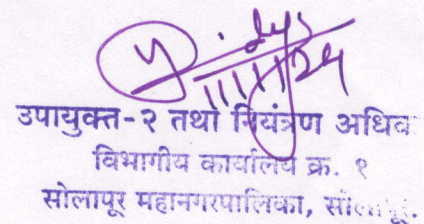 11/11/24
उपायुक्त-२ तथा नियंत्रण अधिव
विभागीय कार्यालय क्र. १
सोलापूर महानगरपालिका, सोलापूर.